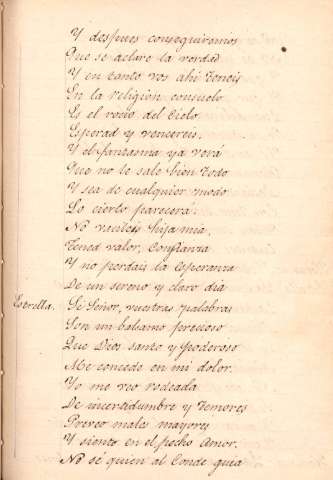 Y despues conseguiremos
Que se aclare la verdad
Y en tanto vos ahi teneis
En la religion consuelo
Es el rocio del Cielo
Esperad y vencereis,
Y el fantasma ya verá
Que no le sale bien todo
Y sea de cualquier modo
Lo cierto parecerá.
No vacileis hija mia,
Tened valor, Confianza
Y no perdais la Esperanza
De un sereno y claro dia
Estrella. Si Señor, vuestras palabras
Son un balsamo precioso
Que Dios santo y poderoso
Me concede en mi dolor.
Yo me veo rodeada
De incertidumbre y temores
Preveo males mayores
Y siento en el pecho Amor.
No sé quien al Conde guia